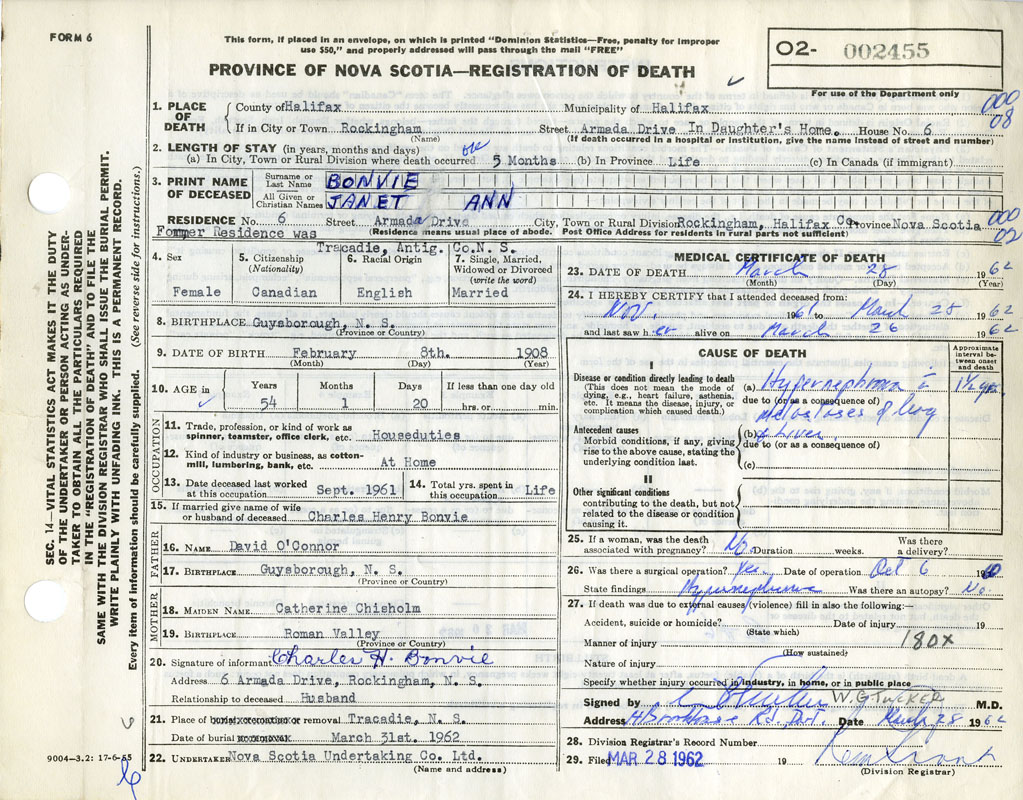 FORM 6
This form, if placed in an envelope, on which is printed "Dominion Statistics—Free, penalty for improper
use $50," and properly addressed will pass through the mail "FREE"
PROVINCE OF NOVA SCOTIA—REGISTRATION OF DEATH
02- 002455
For use of the Department only
000
08
1. PLACE OF DEATH
County of Halifax Municipality of Halifax
If in City or Town Rockingham Street Armada Drive In Daughter's Home. House No. 6
(Name) (If death occurred in a hospital or institution, give the name instead of street and number)
2. LENGTH OF STAY (in years, months and days)
(a) In City, Town or Rural Division where death occurred 5 Months (b) In Province Life (c) In Canada (if immigrant)
3. PRINT NAME OF DECEASED
Surname or Last Name BONVIE
All Given or Christian Names JANET ANN
RESIDENCE No. 6 Street Armada Drive City, Town or Rural Division Rockingham, Halifax Co. Province Nova Scotia
000
02
Fommer Residence was (Residence means usual place of abode. Post Office Address for residents in rural parts not sufficient)
Tracadie, Antig. Co.N. S.
4. Sex
Female
5. Citizenship (Nationality)
Canadian
6. Racial Origin
English
7. Single, Married, Widowed or Divorced (write the word)
Married
8. BIRTHPLACE Guysborough, N. S.
(Province or Country)
9. DATE OF BIRTH February 8th. 1908
(Month) (Day) (Year)
10. AGE in
Years Months Days If less than one day old
54 1 20 hrs. or min.
OCCUPATION
11. Trade, profession, or kind of work as
spinner, teamster, office clerk, etc. Houseduties
12. Kind of industry or business, as cotton-
mill, lumbering, bank, etc. At Home
13. Date deceased last worked
at this occupation Sept. 1961
14. Total yrs. spent in
this occupation Life
15. If married give name of wife
or husband of deceased Charles Henry Bonvie
FATHER
16. NAME David O'Connor
17. BIRTHPLACE Guysborough, N. S.
(Province or Country)
MOTHER
18. MAIDEN NAME Catherine Chisholm
19. BIRTHPLACE Roman Valley
(Province or Country)
20. Signature of informant Charles H. Bonvie
Address 6 Armada Drive, Rockingham, N. S.
Relationship to deceased Husband
21. Place of removal Tracadie, N. S.
Date of burial March 31st. 1962
22. UNDERTAKER Nova Scotia Undertaking Co. Ltd.
(Name and address)
MEDICAL CERTIFICATE OF DEATH
23. DATE OF DEATH March 28 1962
(Month) (Day) (Year)
24. I HEREBY CERTIFY that I attended deceased from:
Nov. 1961 to March 28 1962
and last saw her alive on March 26 1962
CAUSE OF DEATH
Approximate interval between onset and death
I
Disease or condition directly leading to death
(This does not mean the mode of
dying, e.g., heart failure, asthenia,
etc. It means the disease, injury, or
complication which caused death.)
(a) Hypernephroma 1½ yrs.
due to (or as a consequence of)
metastases of lung
Antecedent causes
Morbid conditions, if any, giving
rise to the above cause, stating the
underlying condition last.
(b) & liver
due to (or as a consequence of)
(c)
II
Other significant conditions
contributing to the death, but not
related to the disease or condition
causing it.
25. If a woman, was the death
associated with pregnancy? No Duration weeks. Was there
a delivery?
26. Was there a surgical operation? Yes Date of operation Oct 6 1960
State findings Hypernephroma Was there an autopsy? No.
27. If death was due to external causes (violence) fill in also the following:—
Accident, suicide or homicide? Date of injury 19
(State which)
Manner of injury 180X
(How sustained)
Nature of injury
Specify whether injury occurred in industry, in home, or in public place
Signed by W.G TUCKER M.D.
Address Date March 28 1962
28. Division Registrar's Record Number
29. Filed MAR 28 1962 19
(Division Registrar)
SEC. 14—VITAL STATISTICS ACT MAKES IT THE DUTY
OF THE UNDERTAKER OR PERSON ACTING AS UNDER-
TAKER TO OBTAIN ALL THE PARTICULARS REQUIRED
IN THE "REGISTRATION OF DEATH" AND TO FILE THE
SAME WITH THE DIVISION REGISTRAR WHO SHALL ISSUE THE BURIAL PERMIT.
WRITE PLAINLY WITH UNFADING INK. THIS IS A PERMANENT RECORD.
Every item of information should be carefully supplied. (See reverse side for instructions.)
9004-3.2: 17-6-55